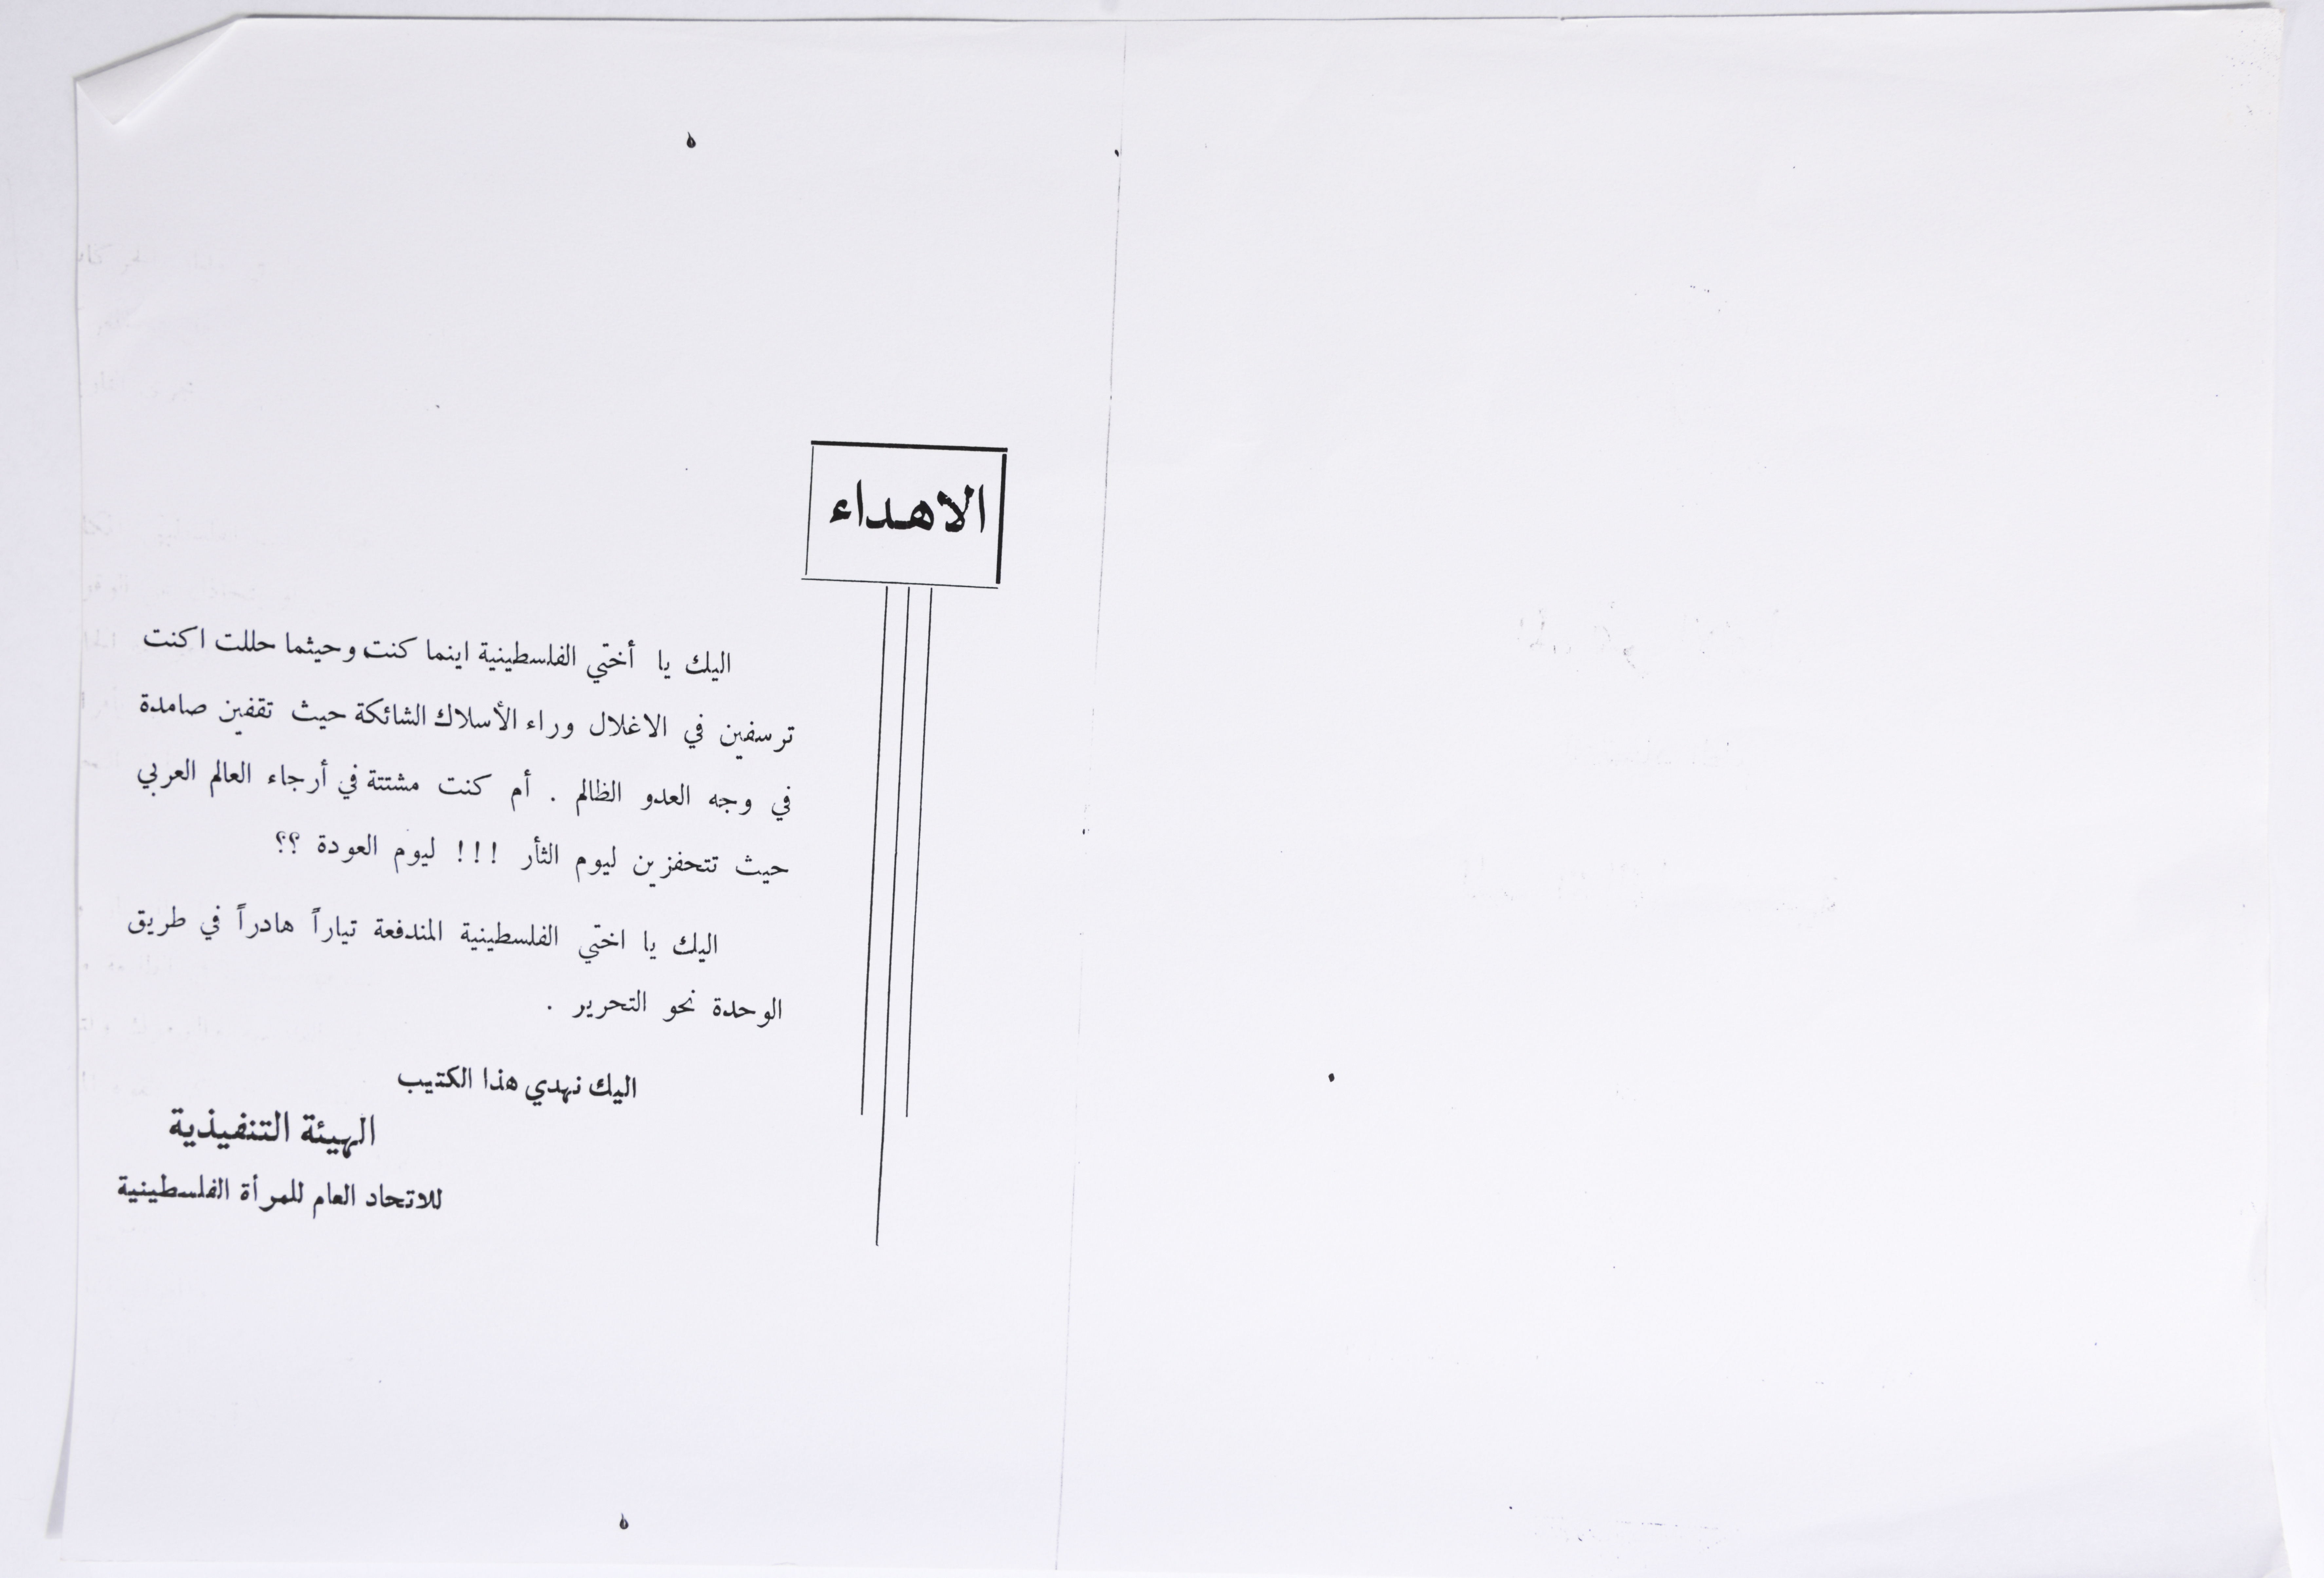 الاهداء
اليك يا أختي الفلسطينية اينما كنت وحيثما حللت اكنت
ترسفين في الاغلال وراء الأسلاك الشائكة حيث تقفين صامدة
في وجه العدو الظالم . أم كنت مشتتة في أرجاء العالم العربي
حيث تتحفزين ليوم الثأر !!! ليوم العودة ؟؟
اليك يا اختي الفلسطينية المندفعة تياراً هادراً في طريق
الوحدة نحو التحرير .
اليك نهدي هذا الكتيب
الهيئة التنفيذية
للاتحاد العام للمرأة الفلسطينية